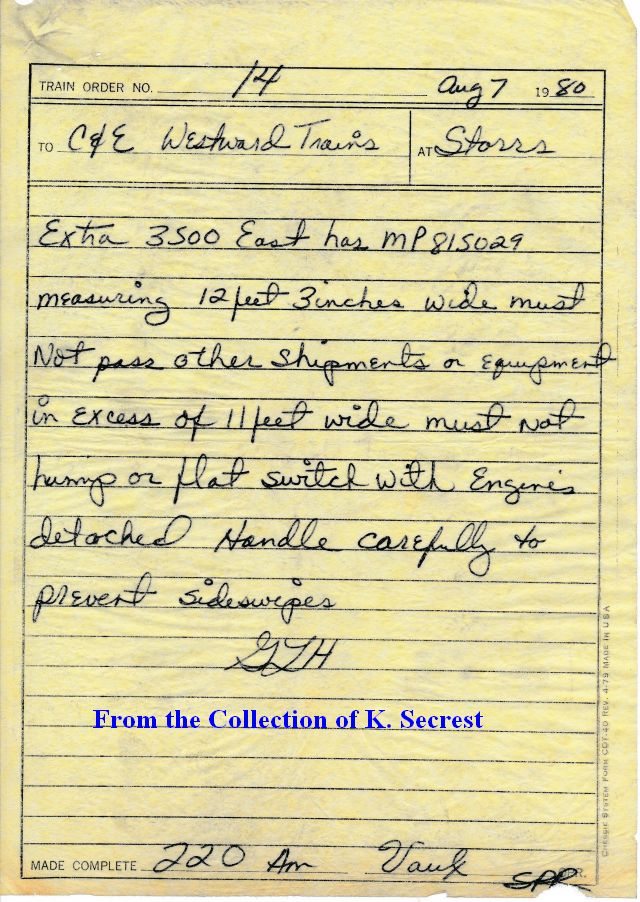 TRAIN ORDER NO. 14 Aug 7 1980
TO C&E Westward Trains AT Storrs
Extra 3500 East has MP 815029
measuring 12 feet 3 inches wide must
Not pass other shipments or equipment
in Excess of 11 feet wide must not
hump or flat switch with Engines
detached Handle carefully to
prevent sideswipes
GLH
From the Collection of K. Secrest
MADE COMPLETE 220 Am
CHESSIE SYSTEM FORM CDT-40 REV. 4-79 MADE IN USA